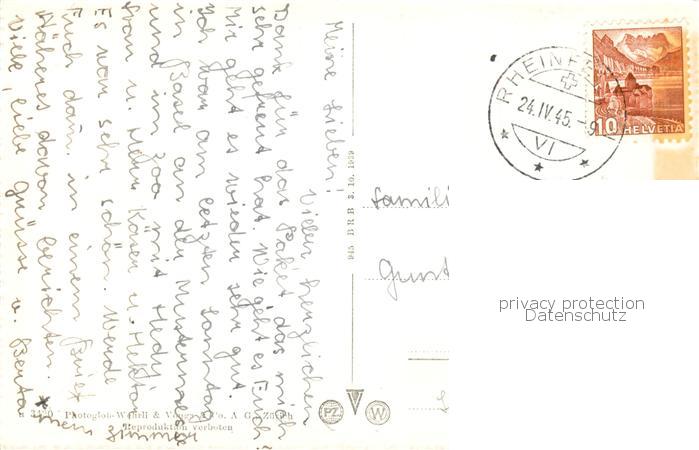 Meine Lieben!
Vielen herzlichen
Dank für das Paket das mich
sehr gefreut hat. Wie geht es Euch?
Mir geht es wieder sehr gut.
Ich war am letzten Sonntag
in Basel an der Mustermesse
und im Zoo mit Hedy
Frau u. Herr Käser u. Hektor
Es war sehr schön. Werde
Euch dann in einem Brief
Näheres davon berichten.
Viele, liebe Grüsse v. Berta
* mein Zimmer
3420 Photoglob-Wehrli & Vouga & Co. A G. Zürich
Reproduktion verboten
945 BRB 3.10.1939
PZ W
Famili
Gunt
RHEINF
24.IV.45.-9
VI
10 HELVETIA
privacy protection
Datenschutz